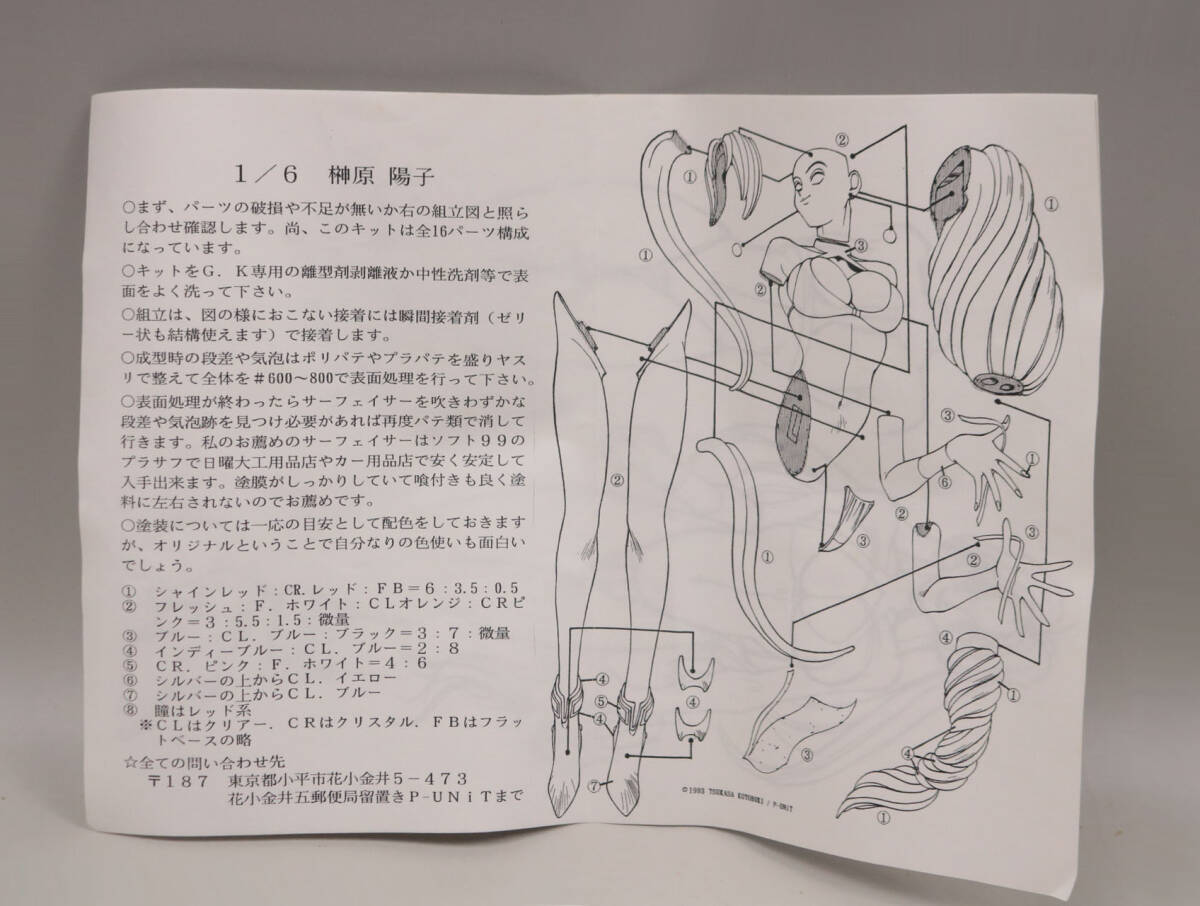 1／6　榊原 陽子
○まず、パーツの破損や不足が無いか右の組立図と照ら
し合わせ確認します。尚、このキットは全16パーツ構成
になっています。
○キットをＧ．Ｋ専用の離型剤剥離液か中性洗剤等で表
面をよく洗って下さい。
○組立は、図の様におこない接着には瞬間接着剤（ゼリ
ー状も結構使えます）で接着します。
○成型時の段差や気泡はポリパテやプラパテを盛りヤス
リで整えて全体を＃600～800で表面処理を行って下さい。
○表面処理が終わったらサーフェイサーを吹きわずかな
段差や気泡跡を見つけ必要があれば再度パテ類で消して
行きます。私のお薦めのサーフェイサーはソフト９９の
プラサフで日曜大工用品店やカー用品店で安く安定して
入手出来ます。塗膜がしっかりしていて喰付きも良く塗
料に左右されないのでお薦めです。
○塗装については一応の目安として配色をしておきます
が、オリジナルということで自分なりの色使いも面白い
でしょう。
① シャインレッド：CR.レッド：ＦＢ＝６：3.5：0.5
② フレッシュ：Ｆ．ホワイト：ＣＬオレンジ：ＣＲピ
ンク＝３：5.5：1.5：微量
③ ブルー：ＣＬ．ブルー：ブラック＝３：７：微量
④ インディーブルー：ＣＬ．ブルー＝２：８
⑤ ＣＲ．ピンク：Ｆ．ホワイト＝４：６
⑥ シルバーの上からＣＬ．イエロー
⑦ シルバーの上からＣＬ．ブルー
⑧ 瞳はレッド系
※ＣＬはクリアー．ＣＲはクリスタル．ＦＢはフラッ
トベースの略
☆全ての問い合わせ先
〒１８７　東京都小平市花小金井５－４７３
花小金井五郵便局留置きＰ－ＵＮｉＴまで
②
①
①
①
③
②
③
①
⑥
②
②
③
②
①
④
①
④
⑤
④
④
③
④
⑦
①
©1993 TSUKASA KOTOBUKI / P-UNiT